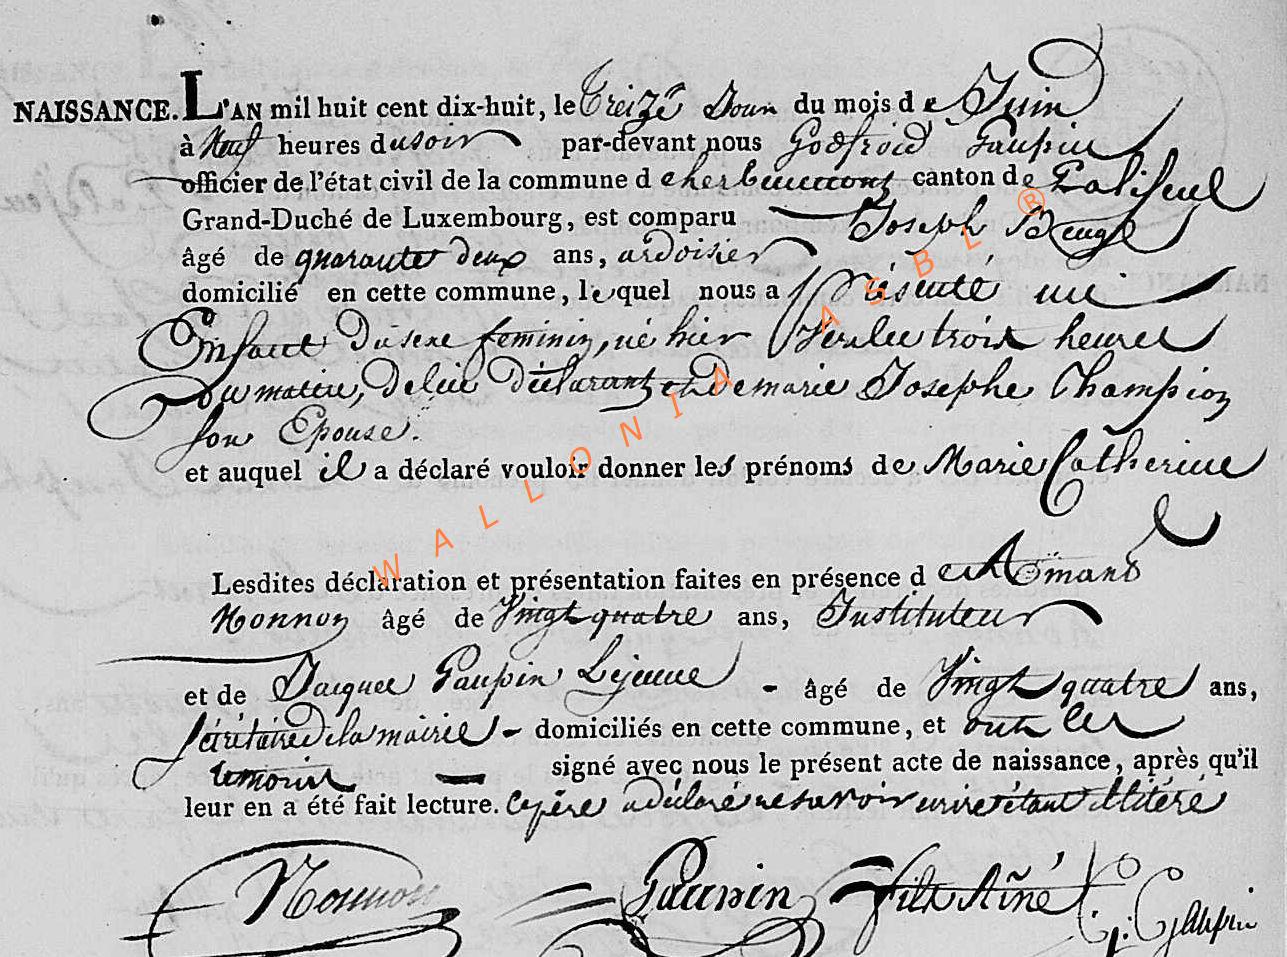 NAISSANCE. L'AN mil huit cent dix-huit, le treize Jour du mois de Juin
à Neuf heures du soir par-devant nous Godfroid Gaupin
officier de l'état civil de la commune d'herbeumont canton de Paliseul
Grand-Duché de Luxembourg, est comparu Joseph
âgé de quarante deux ans, ardoisier
domicilié en cette commune, lequel nous a présenté un
Enfant du sexe feminin, né hier vers les trois heures
du matin, de lui déclarant et de marie Josephe Champion
son Epouse.
et auquel il a déclaré vouloir donner les prénoms de Marie Catherine
Lesdites déclaration et présentation faites en présence de Amand
Nonnon âgé de Vingt quatre ans, Instituteur
et de Jacques Gaupin Lejeune - âgé de Vingt quatre ans,
sécrétaire de la mairie - domiciliés en cette commune, et ont les
temoins signé avec nous le présent acte de naissance, après qu'il
leur en a été fait lecture. le père a déclaré ne savoir ecrire étant illitéré
Nonnon Gaupin fils Ainé G: J: Gaupin
WALLONIA ASBL ®